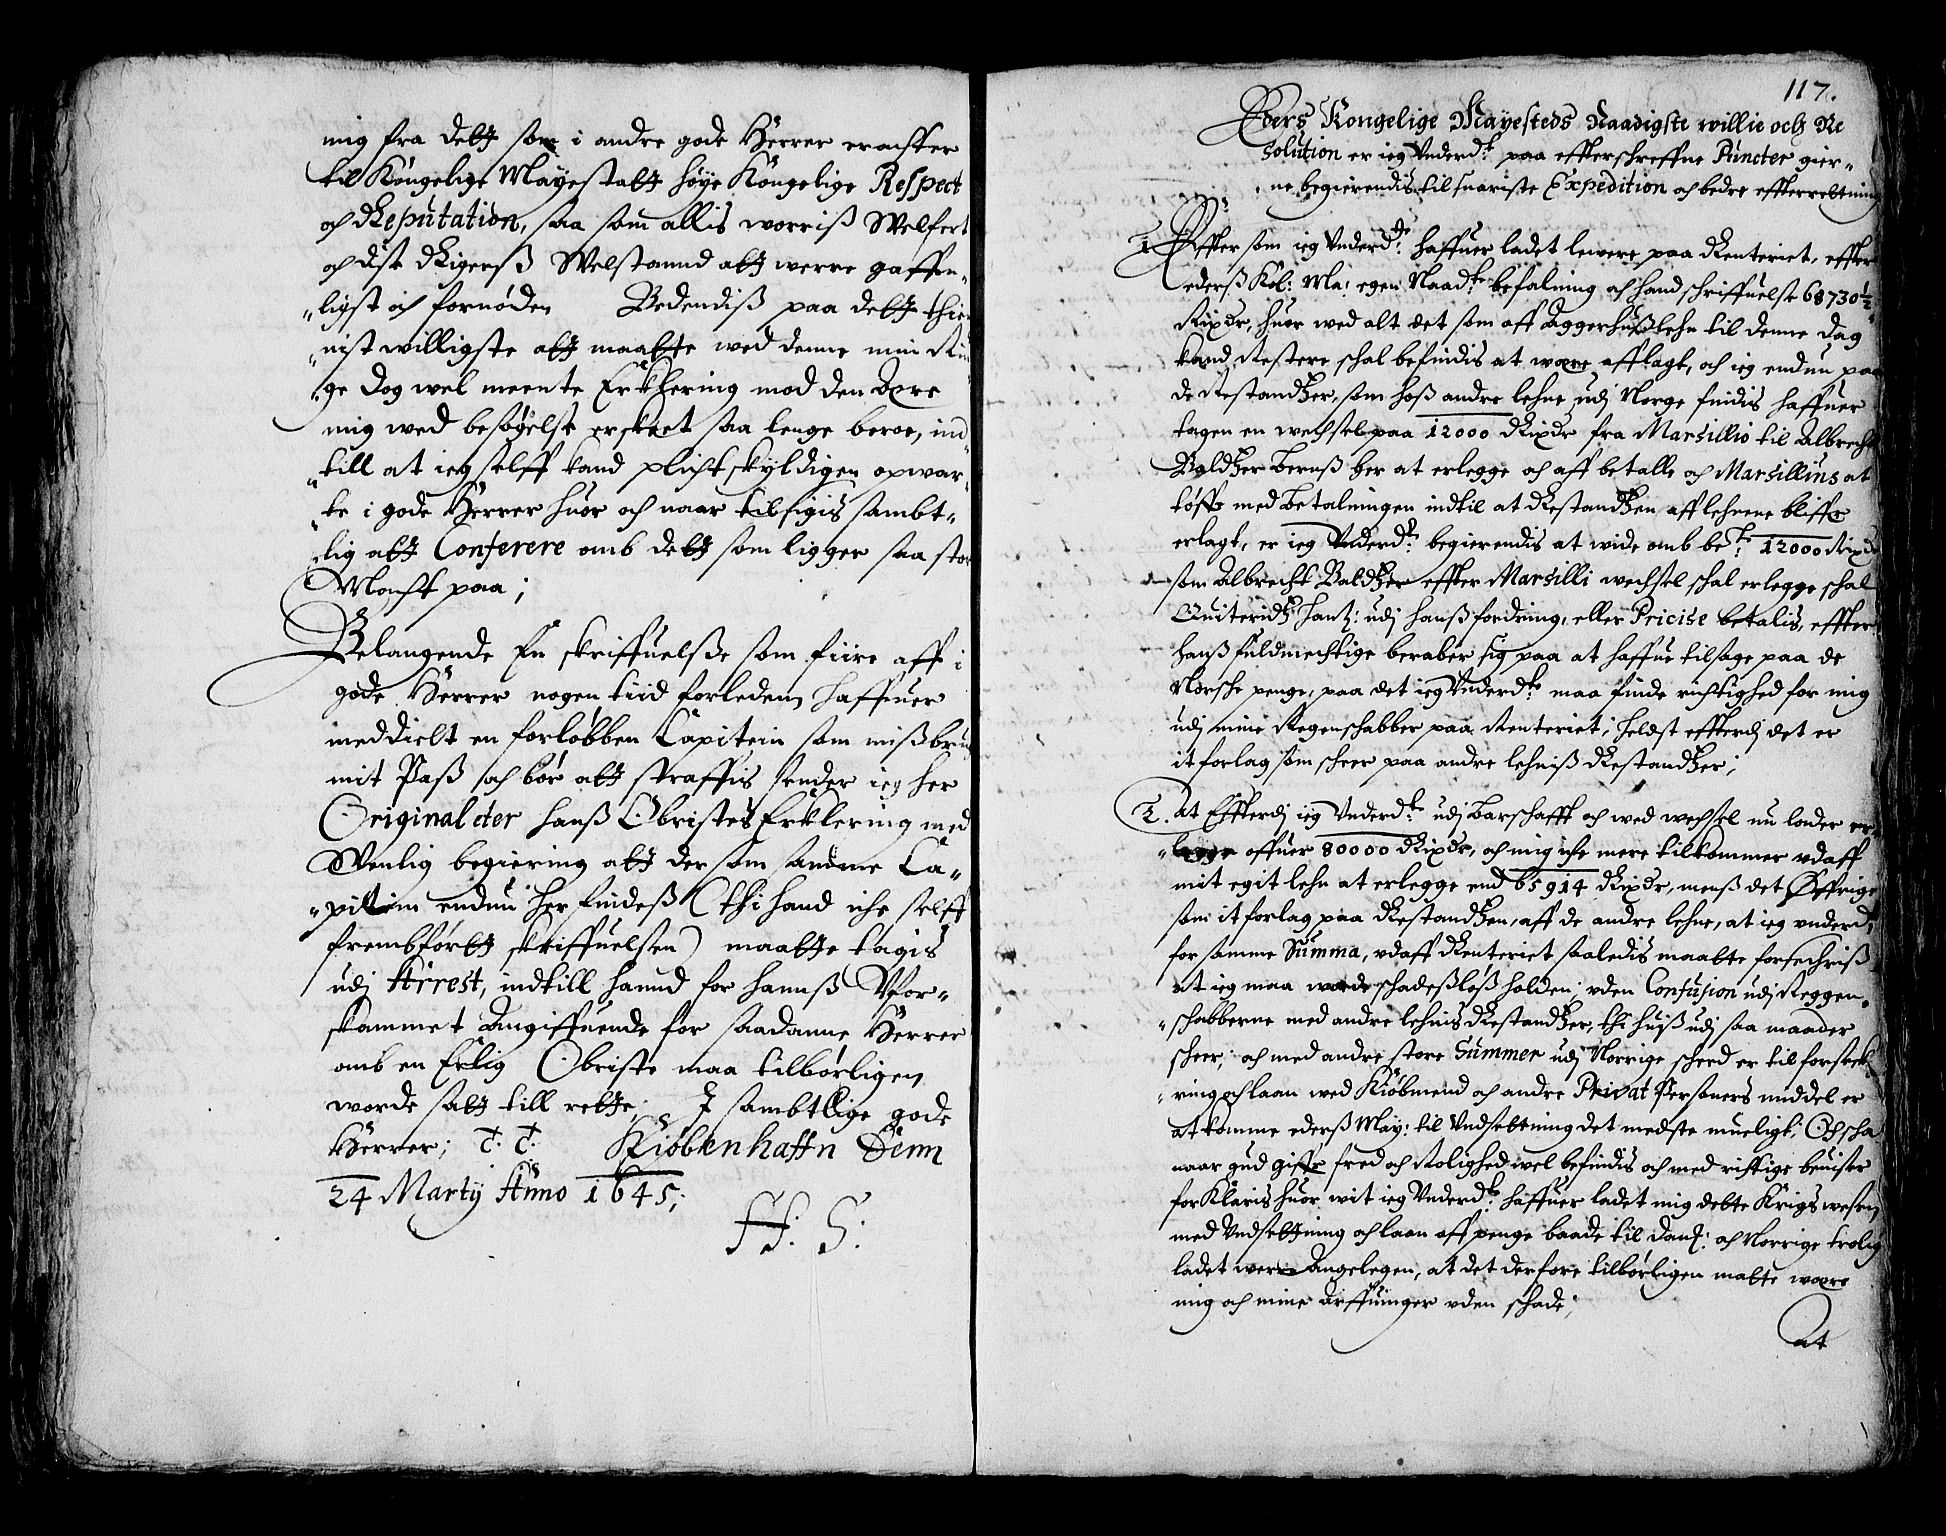 mig fra dette som i andre gode Herrer erachter
til Kongelige Mayestatts høye Kongelige Respect
och Reputation, saa som allis worriß Welfert
och disse Rigerß Welstannd att werre gaffn-
ligst och fornøden Bedendiß paa dette thien
nist willigste att maatte wed denne min Rin
ge dog wel meente Erklering mod den dere
mig wed besøgelse er skeet saa lenge beroe, ind
till at ieg selff kand plichtskyldigen opwar-
te i gode Herrer huor och naar tilsigis sambt-
lig att Conferere omb dette som ligger saa stor
Macht paa;
Belangende En skriffuelße som fiire aff i
gode Herrer nogen tiid forledenn haffuer
meddielt en forløbben Capitein som mißbrug
mit Paß och bør att straffis sender ieg her
Original der hanß Obristes Erklering med
Wenlig begiering att der som samme Ca-
pitein endnu her findeß (thi hand iche selff
frembførtt skriffuelsen) maatte tagis
udj Arrest, indtill hannd for hannß Vfor-
skammet Angiffuende for saadanne Herrer
omb en Erlig Obriste maa tilbørligen
worde satt till rette; J sambtlige gode
Herrer; T. T. Kiøbenhaffn Denn
24 Martij Anno 1645;
H: S:
117.
Eders Kongelige Mayesteds Naadigste willie och Re
solution er ieg Vnderd: paa effterschreffne Puncter gier-
ne begierendis til suariste Expedition och bedre effterretning
1. Effter som ieg Vnderd: haffuer ladet lewere paa Renteriet, effter
ederß Kol: Ma: egen Naad: befalning och handschriffuelse 68730½
Rixdr, huor wed alt det som aff Aggerhuß lehn til denne dag
kand Restere schal befindis at were afflagt, och ieg endnu paa
de Restandtzer, som hoß andre lehne udj Norge findis haffuer
tagen en wechsel paa 12000 Rixdr fra Marsillio til Albrecht
Baldtzer Bernß her at erlegge och aff betalle och Marsillius at
tøffe med betalningen indtil at Restandtzen aff lehnene bliffe
erlagt, er ieg Vnderd: begierendis at wide omb be: 12000 Rixdr
som Albrecht Baldtzer effter Marsilli wechsel schal erlegge schal
Quiteridtz hantz: udj hanß fordring, eller Pricise betalis, effter
hanß fuldmechtige beraber sig paa at haffue tilsage paa de
Norsche penge, paa det ieg Vnderd: maa finde richtighed for mig
udj mine Regenschabber paa Renteriet, heldst efftterdj det er
it forlag som scheer paa andre lehniß Restandtzer;
2. At Effterdj ieg Vnderd: udj Barschafft och wed wechsel nu lader er-
legge offuer 80000 Rixdr, och mig iche mere tilkommer vdaff
mit egit lehn at erlegge end 65914 Rixdr, menß det Øffrige
som it forlag paa Restandtzen, aff de andre lehne, at ieg vnderd:
for samme Summa, vdaff Renteriet saaledis maatte forsechriß
at ieg maa worde schadeßløß holden; vden Confusion udj Reggen-
schabberne med andre lehnis Restandtzer, thi huiß udj saa maader
scheer; och med andre store Summer udj Norrige scheed er til forstreck
ring och laan wed Kiøbmend och andre Privat Personers middel er
at komme ederß May: til Vndsettning det medste mueligt; Och schal
naar gud giffr fred och Rolighed wel befindis och med richtige beuiser
for Klaris huor wit ieg Vnderd: haffuer ladet mig dette Krigs wesen
med Vndsettning och laan aff penge baade til Danz: och Norrige trolig
ladet were Angelegen, at det derfore tilbørligen matte were
mig och mine Arffuinger vden schade;
at